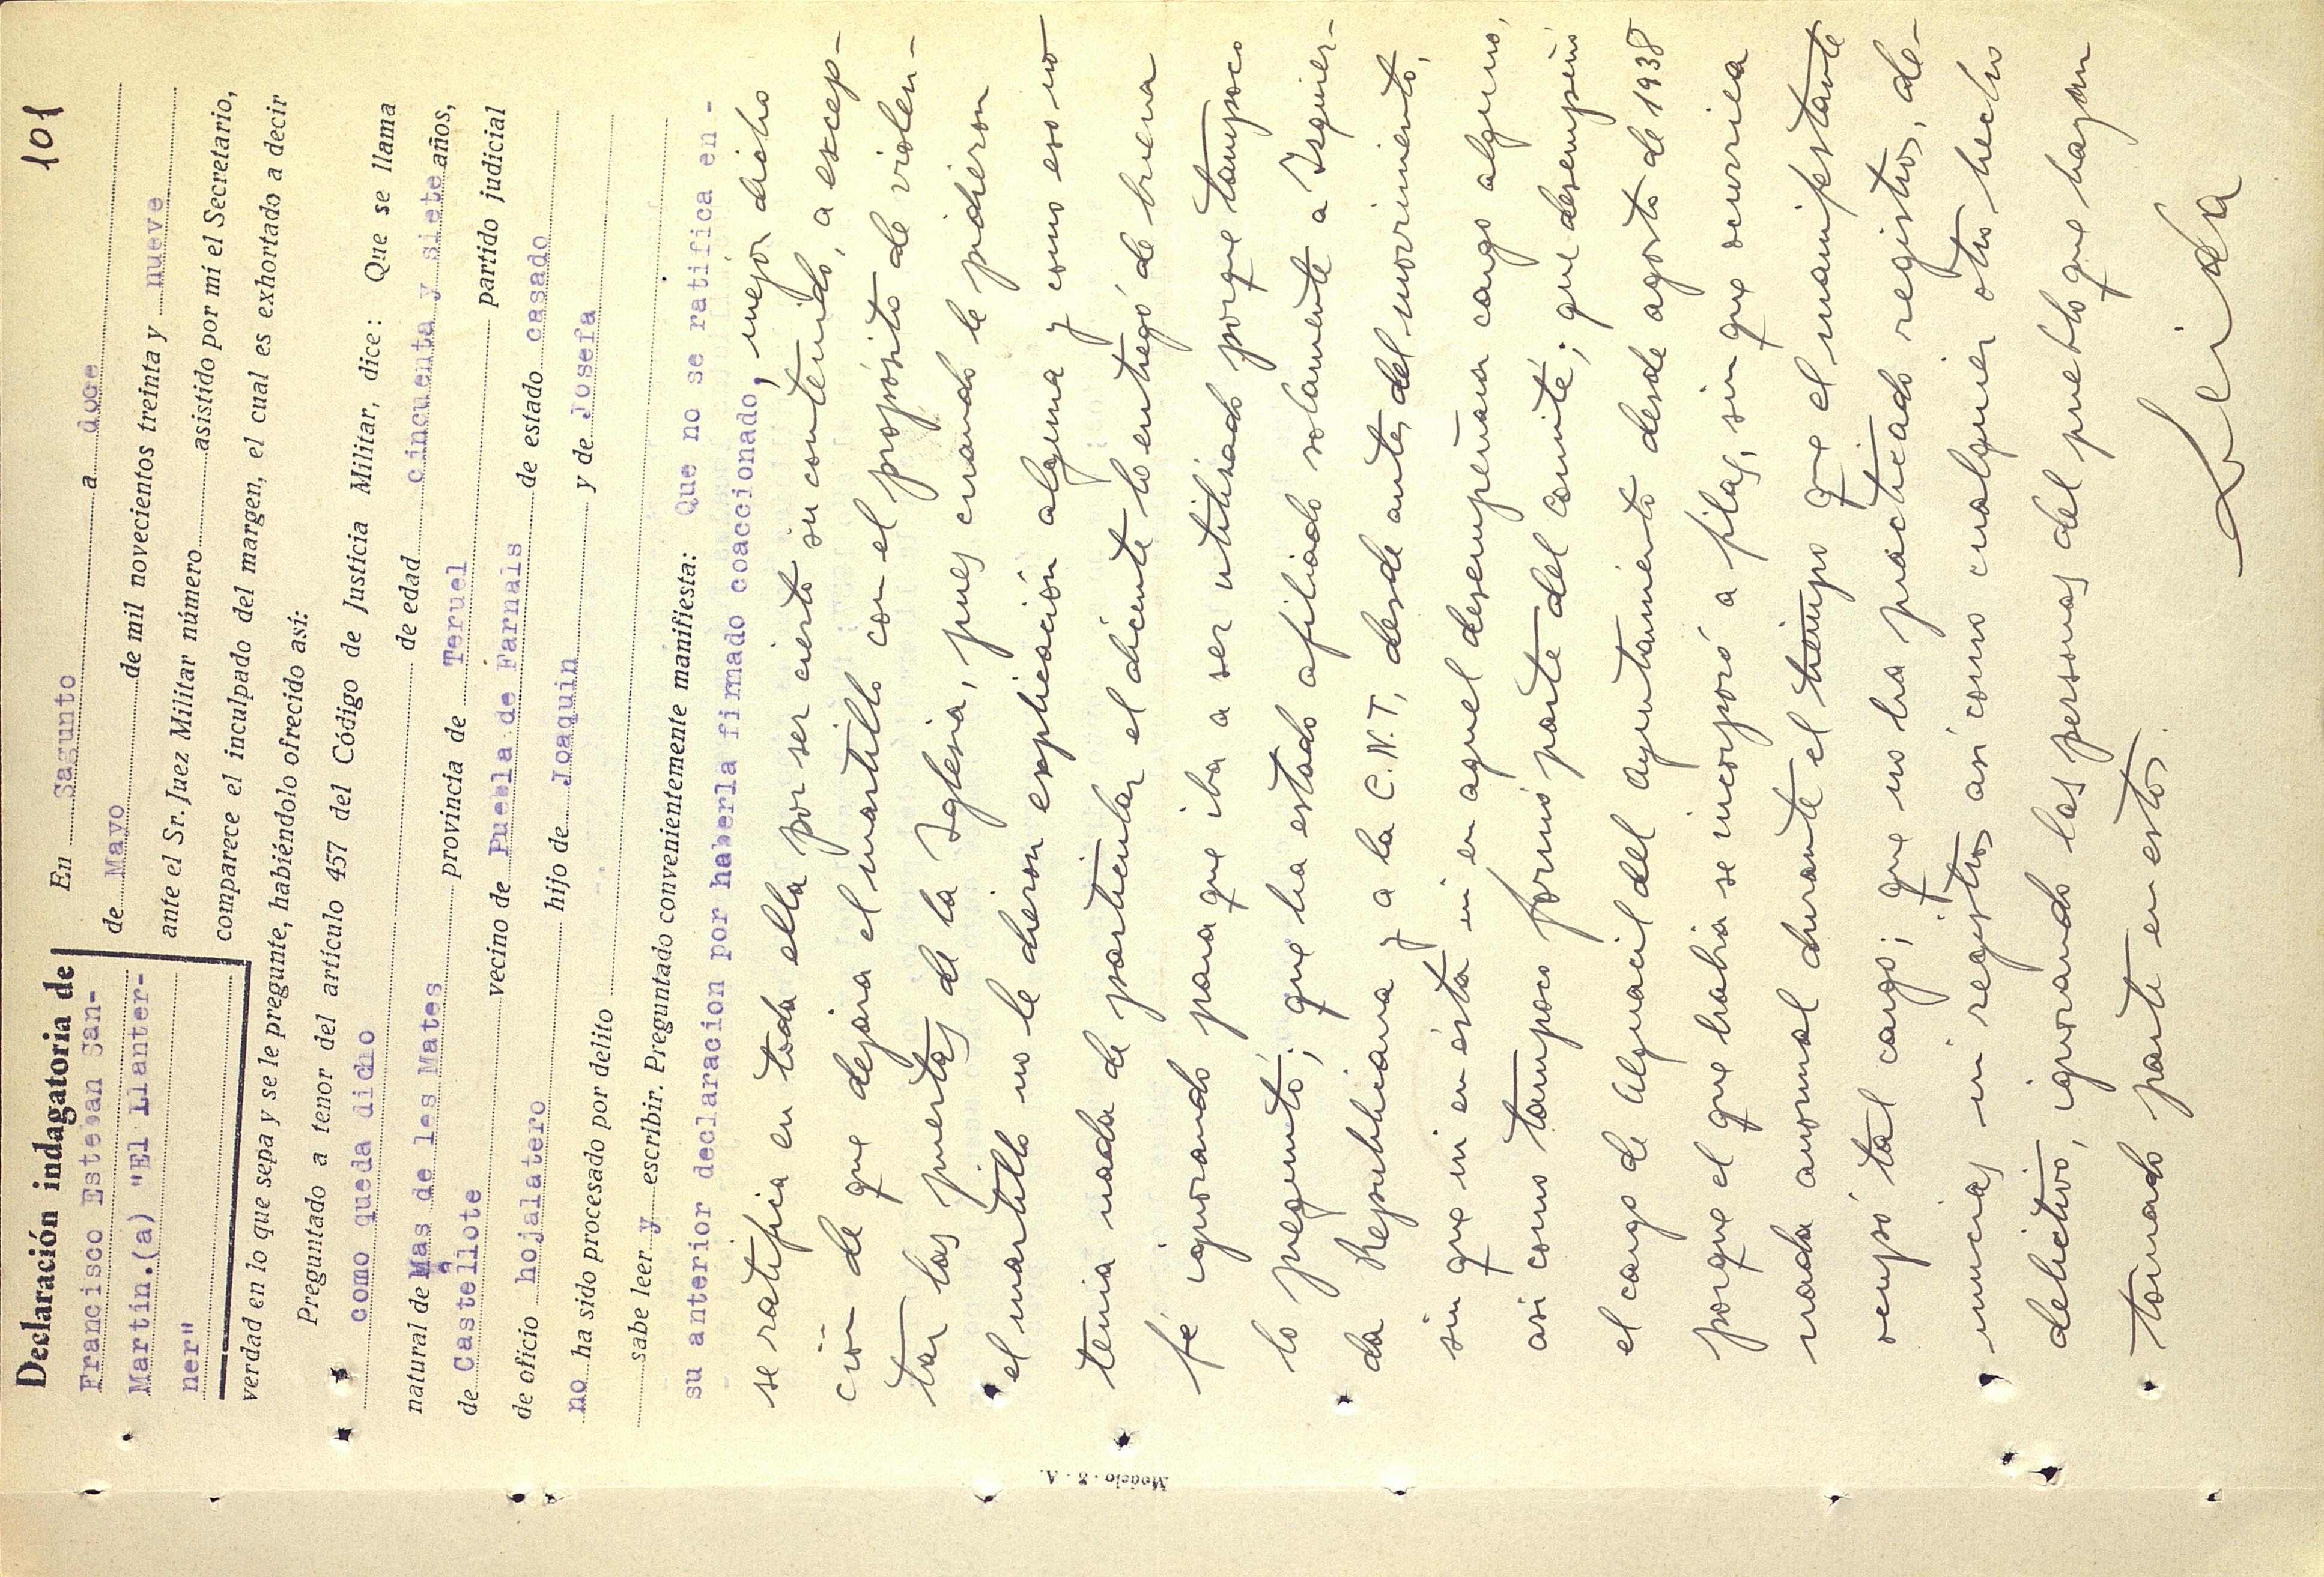 101
Declaración indagatoria de
Francisco Esteban San-
Martin.(a) "El Llanter-
ner"
En Sagunto a doce
de Mayo de mil novecientos treinta y nueve
ante el Sr. Juez Militar número asistido por mi el Secretario,
comparece el inculpado del margen, el cual es exhortado a decir
verdad en lo que sepa y se le pregunte, habiéndolo ofrecido así:
Preguntado a tenor del artículo 457 del Código de Justicia Militar, dice: Que se llama
como queda dicho de edad cincuenta y siete años,
natural de Mas de les Mates provincia de Teruel partido judicial
de Castellote vecino de Puebla de Farnals de estado casado
de oficio hojalatero hijo de Joaquin y de Josefa
no ha sido procesado por delito
sabe leer y escribir. Preguntado convenientemente manifiesta: Que no se ratifica en -
su anterior declaracion por haberla firmado coaccionado, mejor dicho
se ratifica en toda ella por ser cierto su contenido, a excep-
ción de que dejara el martillo con el propósito de violen-
tar las puertas de la Iglesia, pues cuando le pidieron
el martillo no le dieron explicación alguna y como eso no
tenia nada de particular el dicente lo entregó de buena
fé ignorando para que iba a ser utilizado porque tampoco
lo preguntó; que ha estado afiliado solamente a Izquier-
da Republicana y a la C.N.T, desde antes del movimiento,
sin que ni en ésta ni en aquel desempeñara cargo alguno,
asi como tampoco formó parte del comité; que desempeñó
el cargo de Alguacil del Ayuntamiento desde agosto de 1938
porque el que habia se incorporó a filas, sin que ocurriera
nada anormal durante el tiempo que el manifestante
ocupó tal cargo; que no ha practicado registros, de-
nuncias ni registros asi como cualquier otro hecho
delictivo, ignorando las personas del pueblo que hayan
tomado parte en estos.
Modelo - 3 - A.